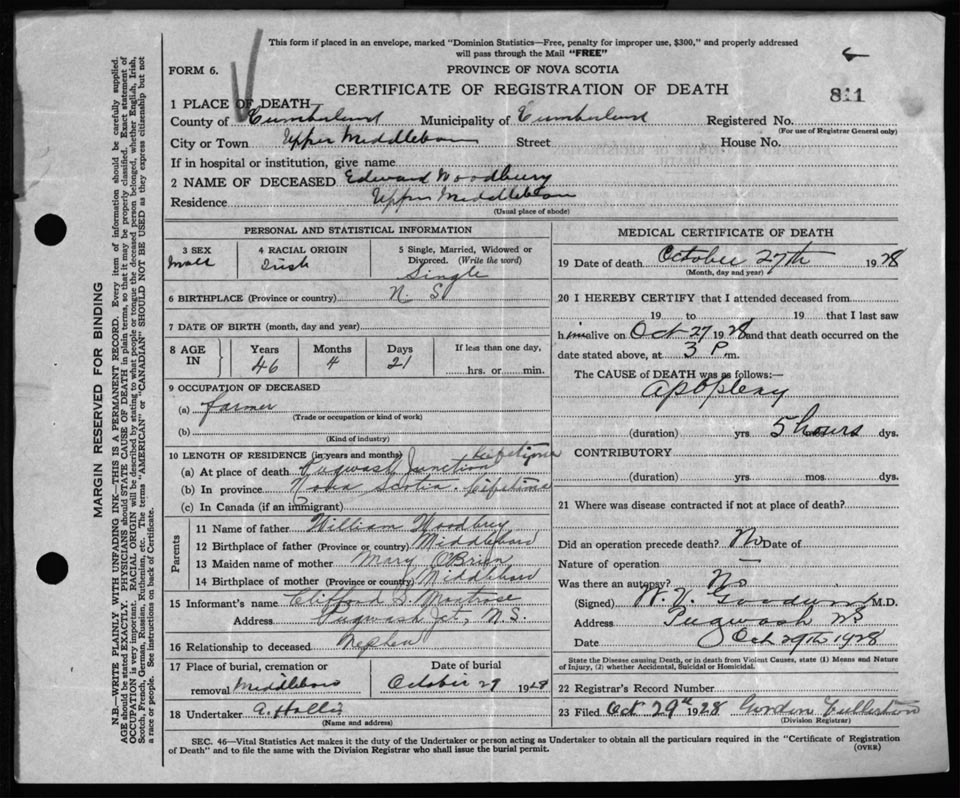 This form if placed in an envelope, marked "Dominion Statistics—Free, penalty for improper use, $300," and properly addressed
will pass through the Mail "FREE"
FORM 6.
PROVINCE OF NOVA SCOTIA
CERTIFICATE OF REGISTRATION OF DEATH
811
1 PLACE OF DEATH
County of Cumberland Municipality of Cumberland Registered No.
(For use of Registrar General only)
City or Town Upper Middleboro Street House No.
If in hospital or institution, give name
2 NAME OF DECEASED Edward Woodbury
Residence Upper Middleboro
(Usual place of abode)
PERSONAL AND STATISTICAL INFORMATION
3 SEX 4 RACIAL ORIGIN 5 Single, Married, Widowed or
Divorced. (Write the word)
Male Irish Single
6 BIRTHPLACE (Province or country) N. S
7 DATE OF BIRTH (month, day and year)
8 AGE IN Years Months Days If less than one day,
46 4 21 hrs. or min.
9 OCCUPATION OF DECEASED
(a) farmer
(Trade or occupation or kind of work)
(b)
(Kind of industry)
10 LENGTH OF RESIDENCE (in years and months)
(a) At place of death Pugwash Junction Lifetime
(b) In province Nova Scotia. Lifetime
(c) In Canada (if an immigrant)
Parents
11 Name of father William Woodbury
12 Birthplace of father (Province or country) Middleboro
13 Maiden name of mother Mary O'Brien
14 Birthplace of mother (Province or country) Middleboro
15 Informant's name Clifford S. Montrose
Address Pugwash Jct, N.S.
16 Relationship to deceased Nephew
17 Place of burial, cremation or Date of burial
removal Middleboro October 29 1928
18 Undertaker A. Hollis
(Name and address)
MEDICAL CERTIFICATE OF DEATH
19 Date of death October 27th 1928
(Month, day and year)
20 I HEREBY CERTIFY that I attended deceased from
19 to 19 that I last saw
him alive on Oct 27 1928 and that death occurred on the
date stated above, at 3 P m.
The CAUSE of DEATH was as follows:—
apoplexy
(duration) yrs 5 hours dys.
CONTRIBUTORY
(duration) yrs. mos. dys.
21 Where was disease contracted if not at place of death?
Did an operation precede death? No Date of
Nature of operation
Was there an autopsy? No
(Signed) Goodwin M.D.
Address Pugwash NS
Date Oct 29th 1928
State the Disease causing Death, or in death from Violent Causes, state (1) Means and Nature
of Injury, (2) whether Accidental, Suicidal or Homicidal.
22 Registrar's Record Number
23 Filed Oct 29th 1928 Gordon Fullerton
(Division Registrar)
SEC. 46—Vital Statistics Act makes it the duty of the Undertaker or person acting as Undertaker to obtain all the particulars required in the "Certificate of Registration
of Death" and to file the same with the Division Registrar who shall issue the burial permit.
(OVER)
MARGIN RESERVED FOR BINDING
N.B.—WRITE PLAINLY WITH UNFADING INK—THIS IS A PERMANENT RECORD. Every item of information should be carefully supplied.
AGE should be stated EXACTLY. PHYSICIANS should STATE CAUSE OF DEATH in plain terms, so that it may be properly classified. Exact statement of
OCCUPATION is very important. RACIAL ORIGIN will be described by stating to what people or tongue the deceased person belonged, whether English, Irish,
Scotch, French, German, Russian, Ruthenian, etc. The terms "AMERICAN" or "CANADIAN" SHOULD NOT BE USED as they express citizenship but not
a race or people. See instructions on back of Certificate.